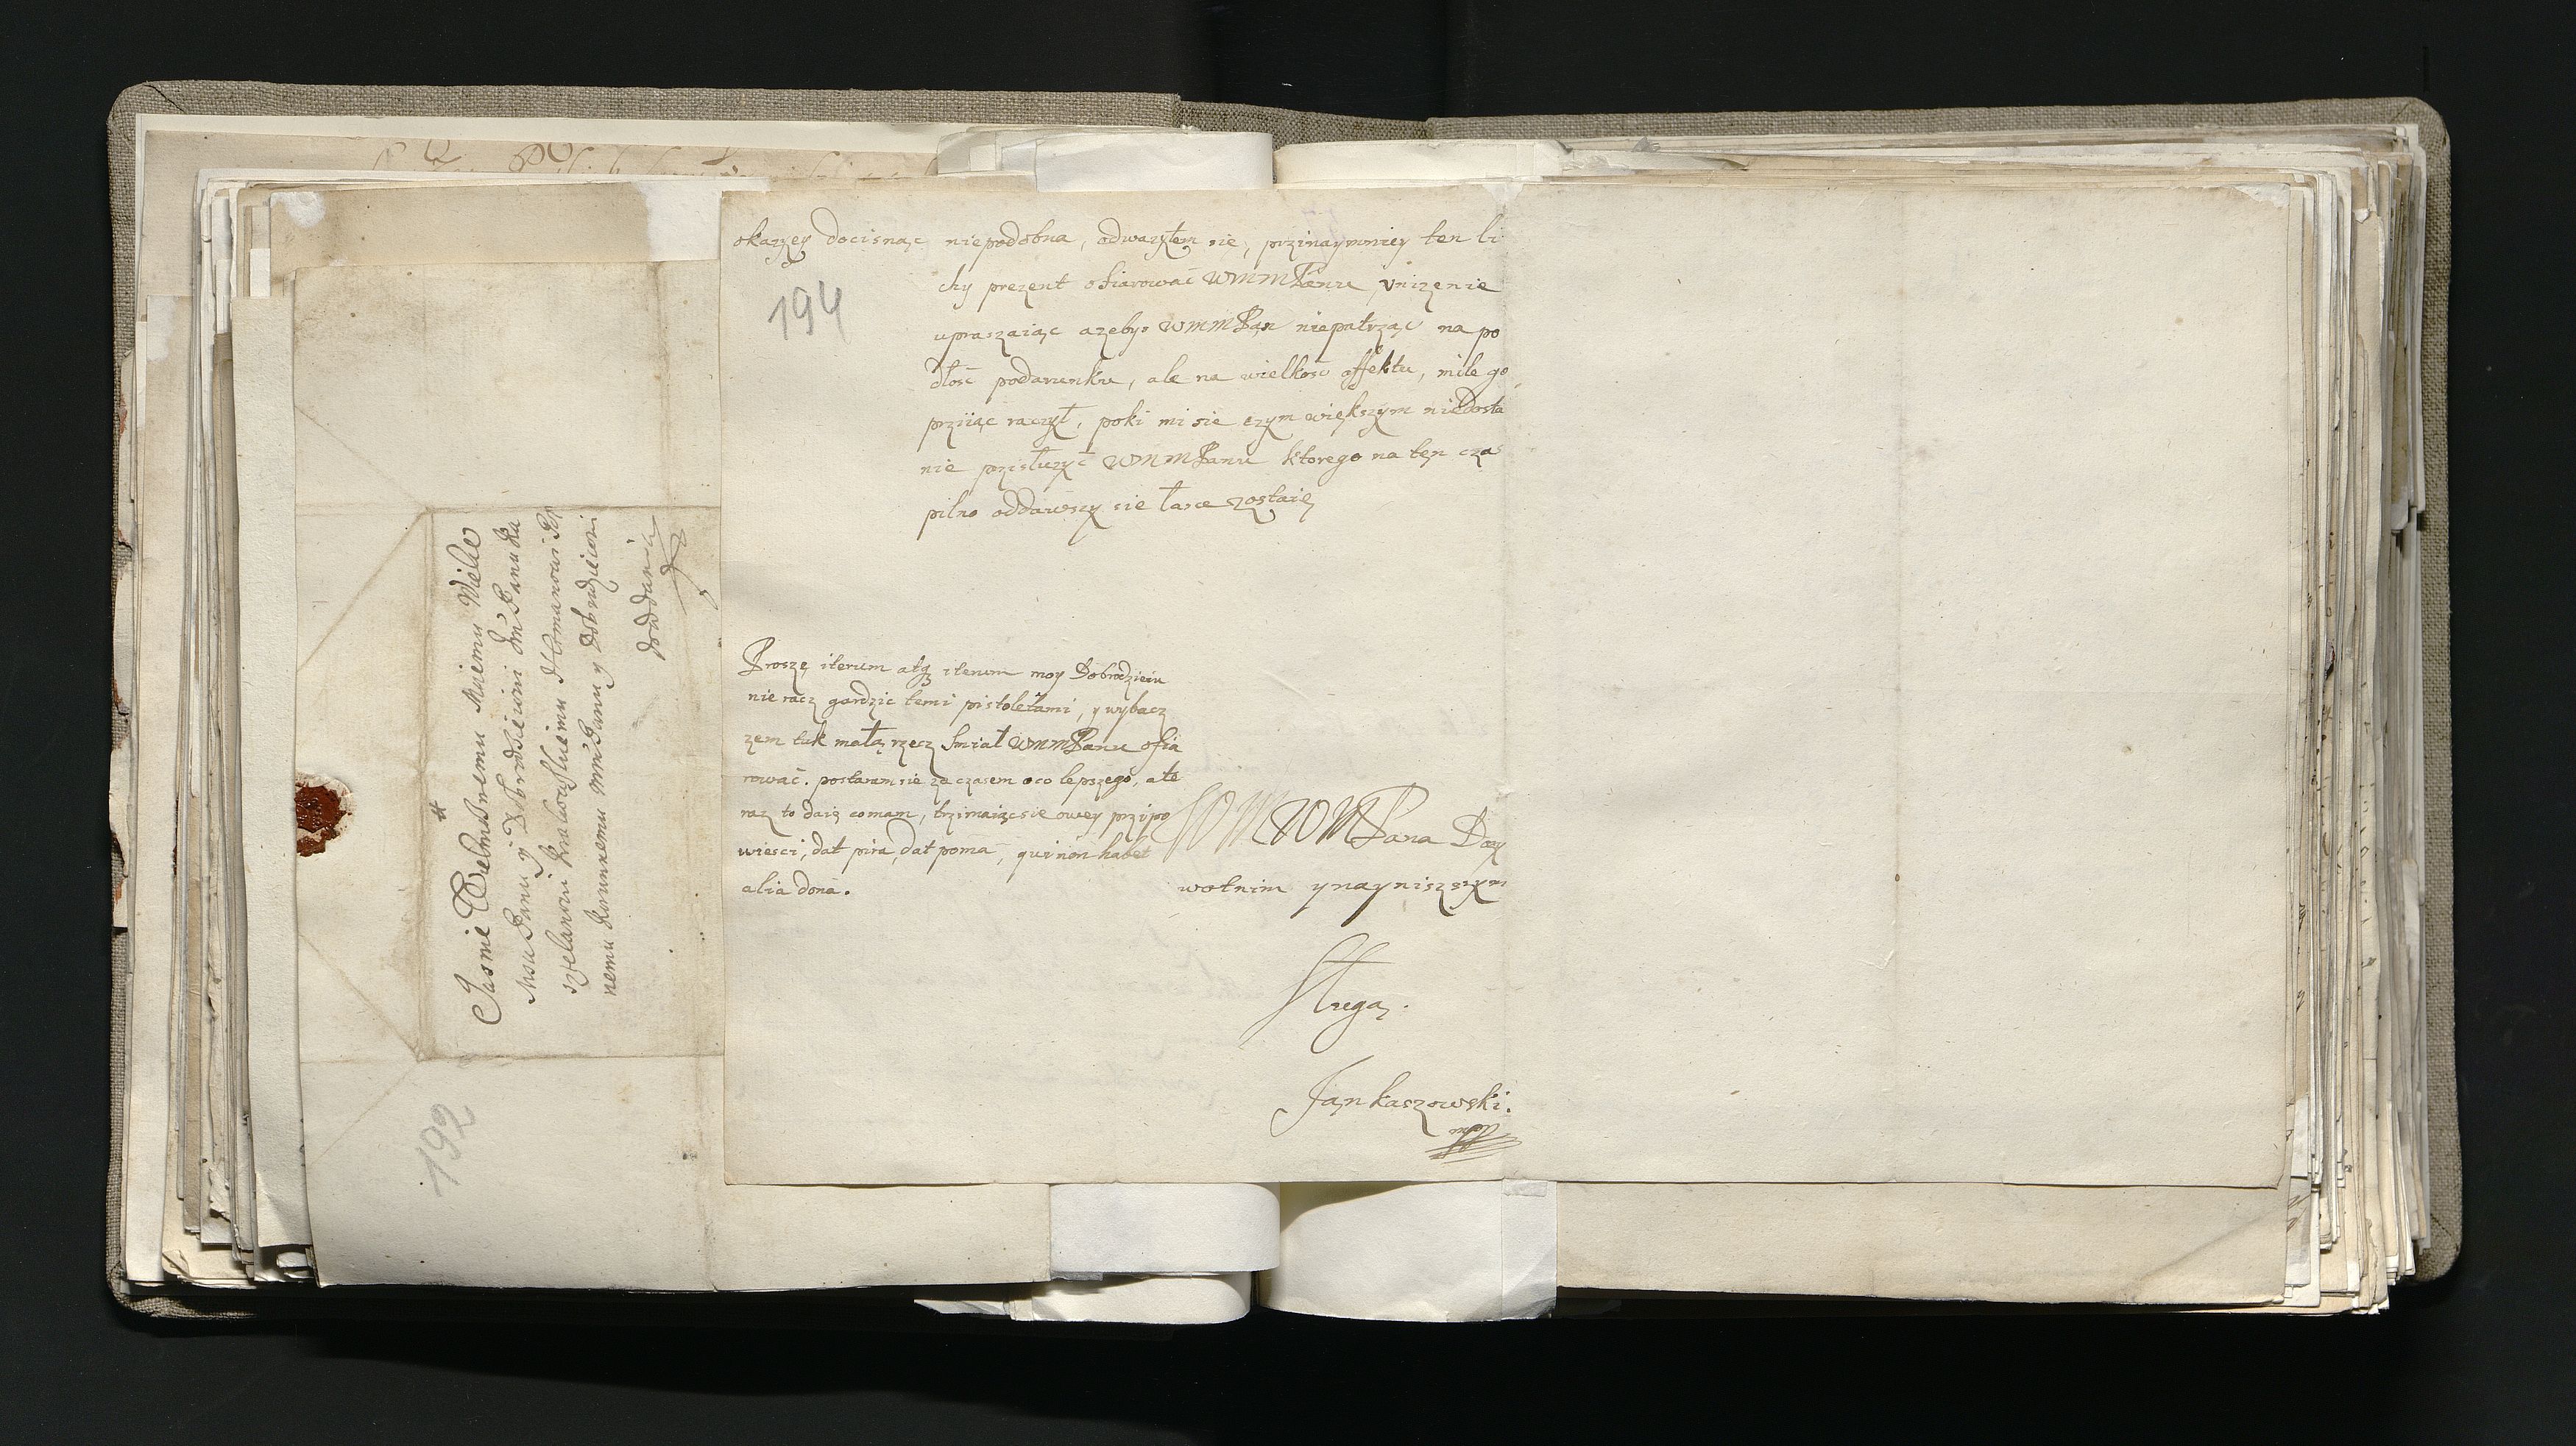 okazyey docisnąc niepodobna, odwazyłem się, przinaymniey ten li
chy prezent ofiarować WMMPanu, vnizenie
upraszaiąc azebys WMMPan niepatrząc na po
dłość podarunku, ale na wielkość affektu, mile go
przyiąc raczył, poki mi sie czym większym niedosta
nie przisłuzyć WMMPanu ktorego na ten czas
pilno oddawszy sie łasce zostaię
194
Proszę iterum atq3 iterum moy Dobrodzieiu
nie racz gardzic temi pistoletami, y wybacz
zem tak małą rzecz smiał WMMPanu ofia
rować. postaram sie za czasem oco lepszego, a te
raz to daię co mam, trzimaiąc sie owey przipo
wiesci, dat pira, dat poma, qui non habet
alia dona.
WMWMPana Dozy
wotnim y naynizszym
Sługą.
Jan Kaszowski.
mpp
Jasnie Wielmoznemu Moiemu Wielce
Msu Panu y Dobrodzieiowi Jm Panu Ka
sztelanowi
nemu Koronnemu MMPanu y Dobrodzieiowi
do oddania
192